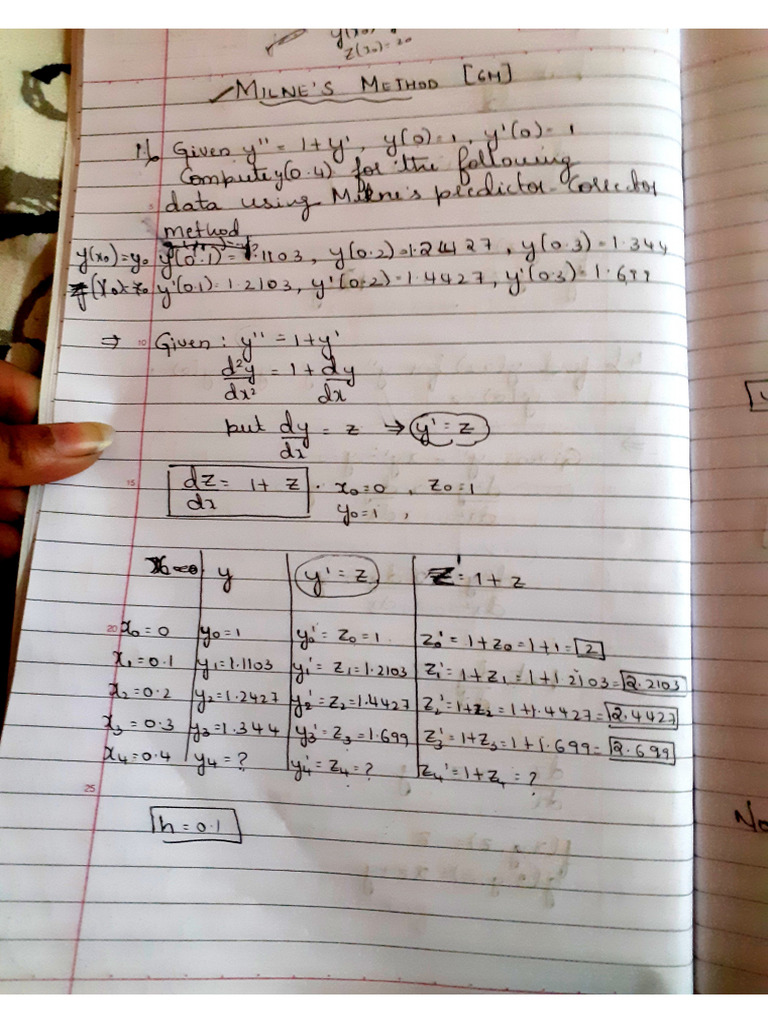 y(x0)
z(x0)=20
MILNE'S METHOD [6M]
1.6 Given y'' = 1+y', y(0)=1, y'(0)=1
Compute y(0.4) for the following
data using Milne's predictor-Corrector
method.
y(x0)=y0 y(0.1)=1.1103, y(0.2)=1.2427, y(0.3)=1.344
z(x0)=z0 y'(0.1)=1.2103, y'(0.2)=1.4427, y'(0.3)=1.699
⇒ Given : y'' = 1+y'
d²y/dx² = 1+dy/dx
put dy/dx = z ⇒ y'=z
dz/dx = 1+z . x0=0, z0=1
y0=1,
y y'=z z'=1+z
x0=0 y0=1 y0'=z0=1. z0'=1+z0=1+1=2
x1=0.1 y1=1.1103 y1'=z1=1.2103 z1'=1+z1=1+1.2103=2.2103
x2=0.2 y2=1.2427 y2'=z2=1.4427 z2'=1+z2=1+1.4427=2.4427
x3=0.3 y3=1.344 y3'=z3=1.699 z3'=1+z3=1+1.699=2.699
x4=0.4 y4=? y4'=z4=? z4'=1+z4=?
h=0.1
No
10
15
20
25